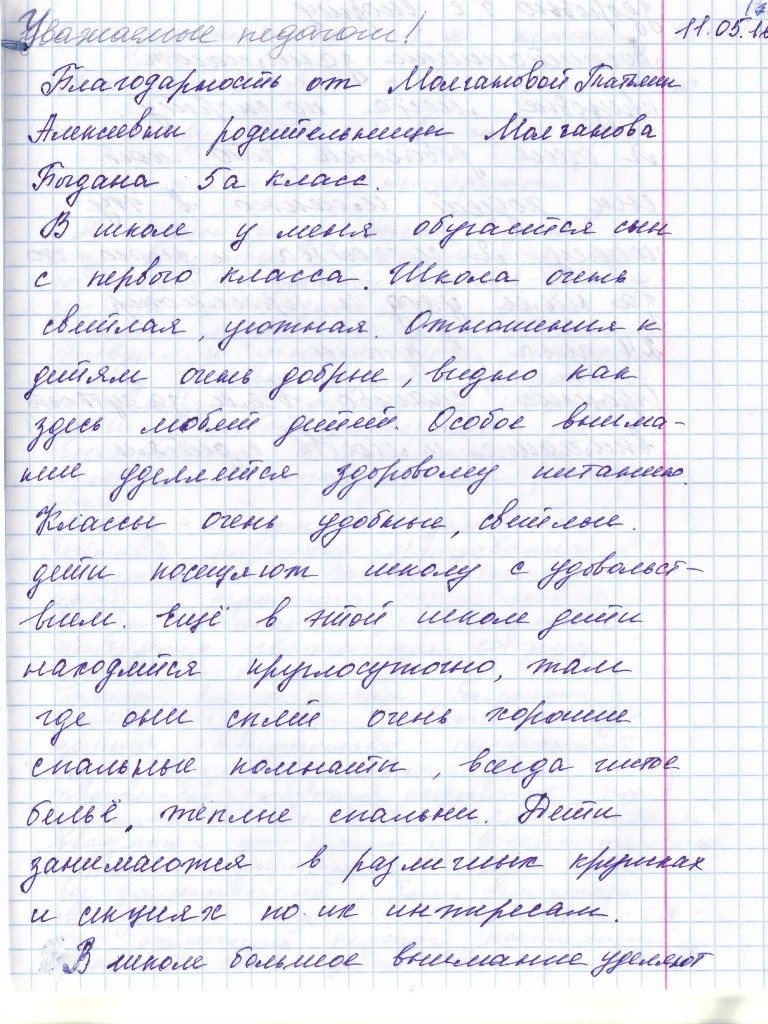 Уважаемые педагоги!
11.05.18
Благодарность от Молгановой Татьяны
Алексеевны родительницы Молганова
Быдана 5а класс.
В школе у меня обучается сын
с первого класса. Школа очень
светлая, уютная. Отношения к
детям очень добрые, видно как
здесь любят детей. Особое внима-
ние уделяется здоровому питанию.
Классы очень удобные, светлые.
дети посещяют школу с удовольст-
вием. Ещё в этой школе дети
находятся круглосуточно, там
где они спят очень хорошие
спальные комнаты, всегда чистое
бельё, тёплые спальни. Дети
занимаются в различных кружках
и секциях по их интересам.
В школе большое внимание уделяют